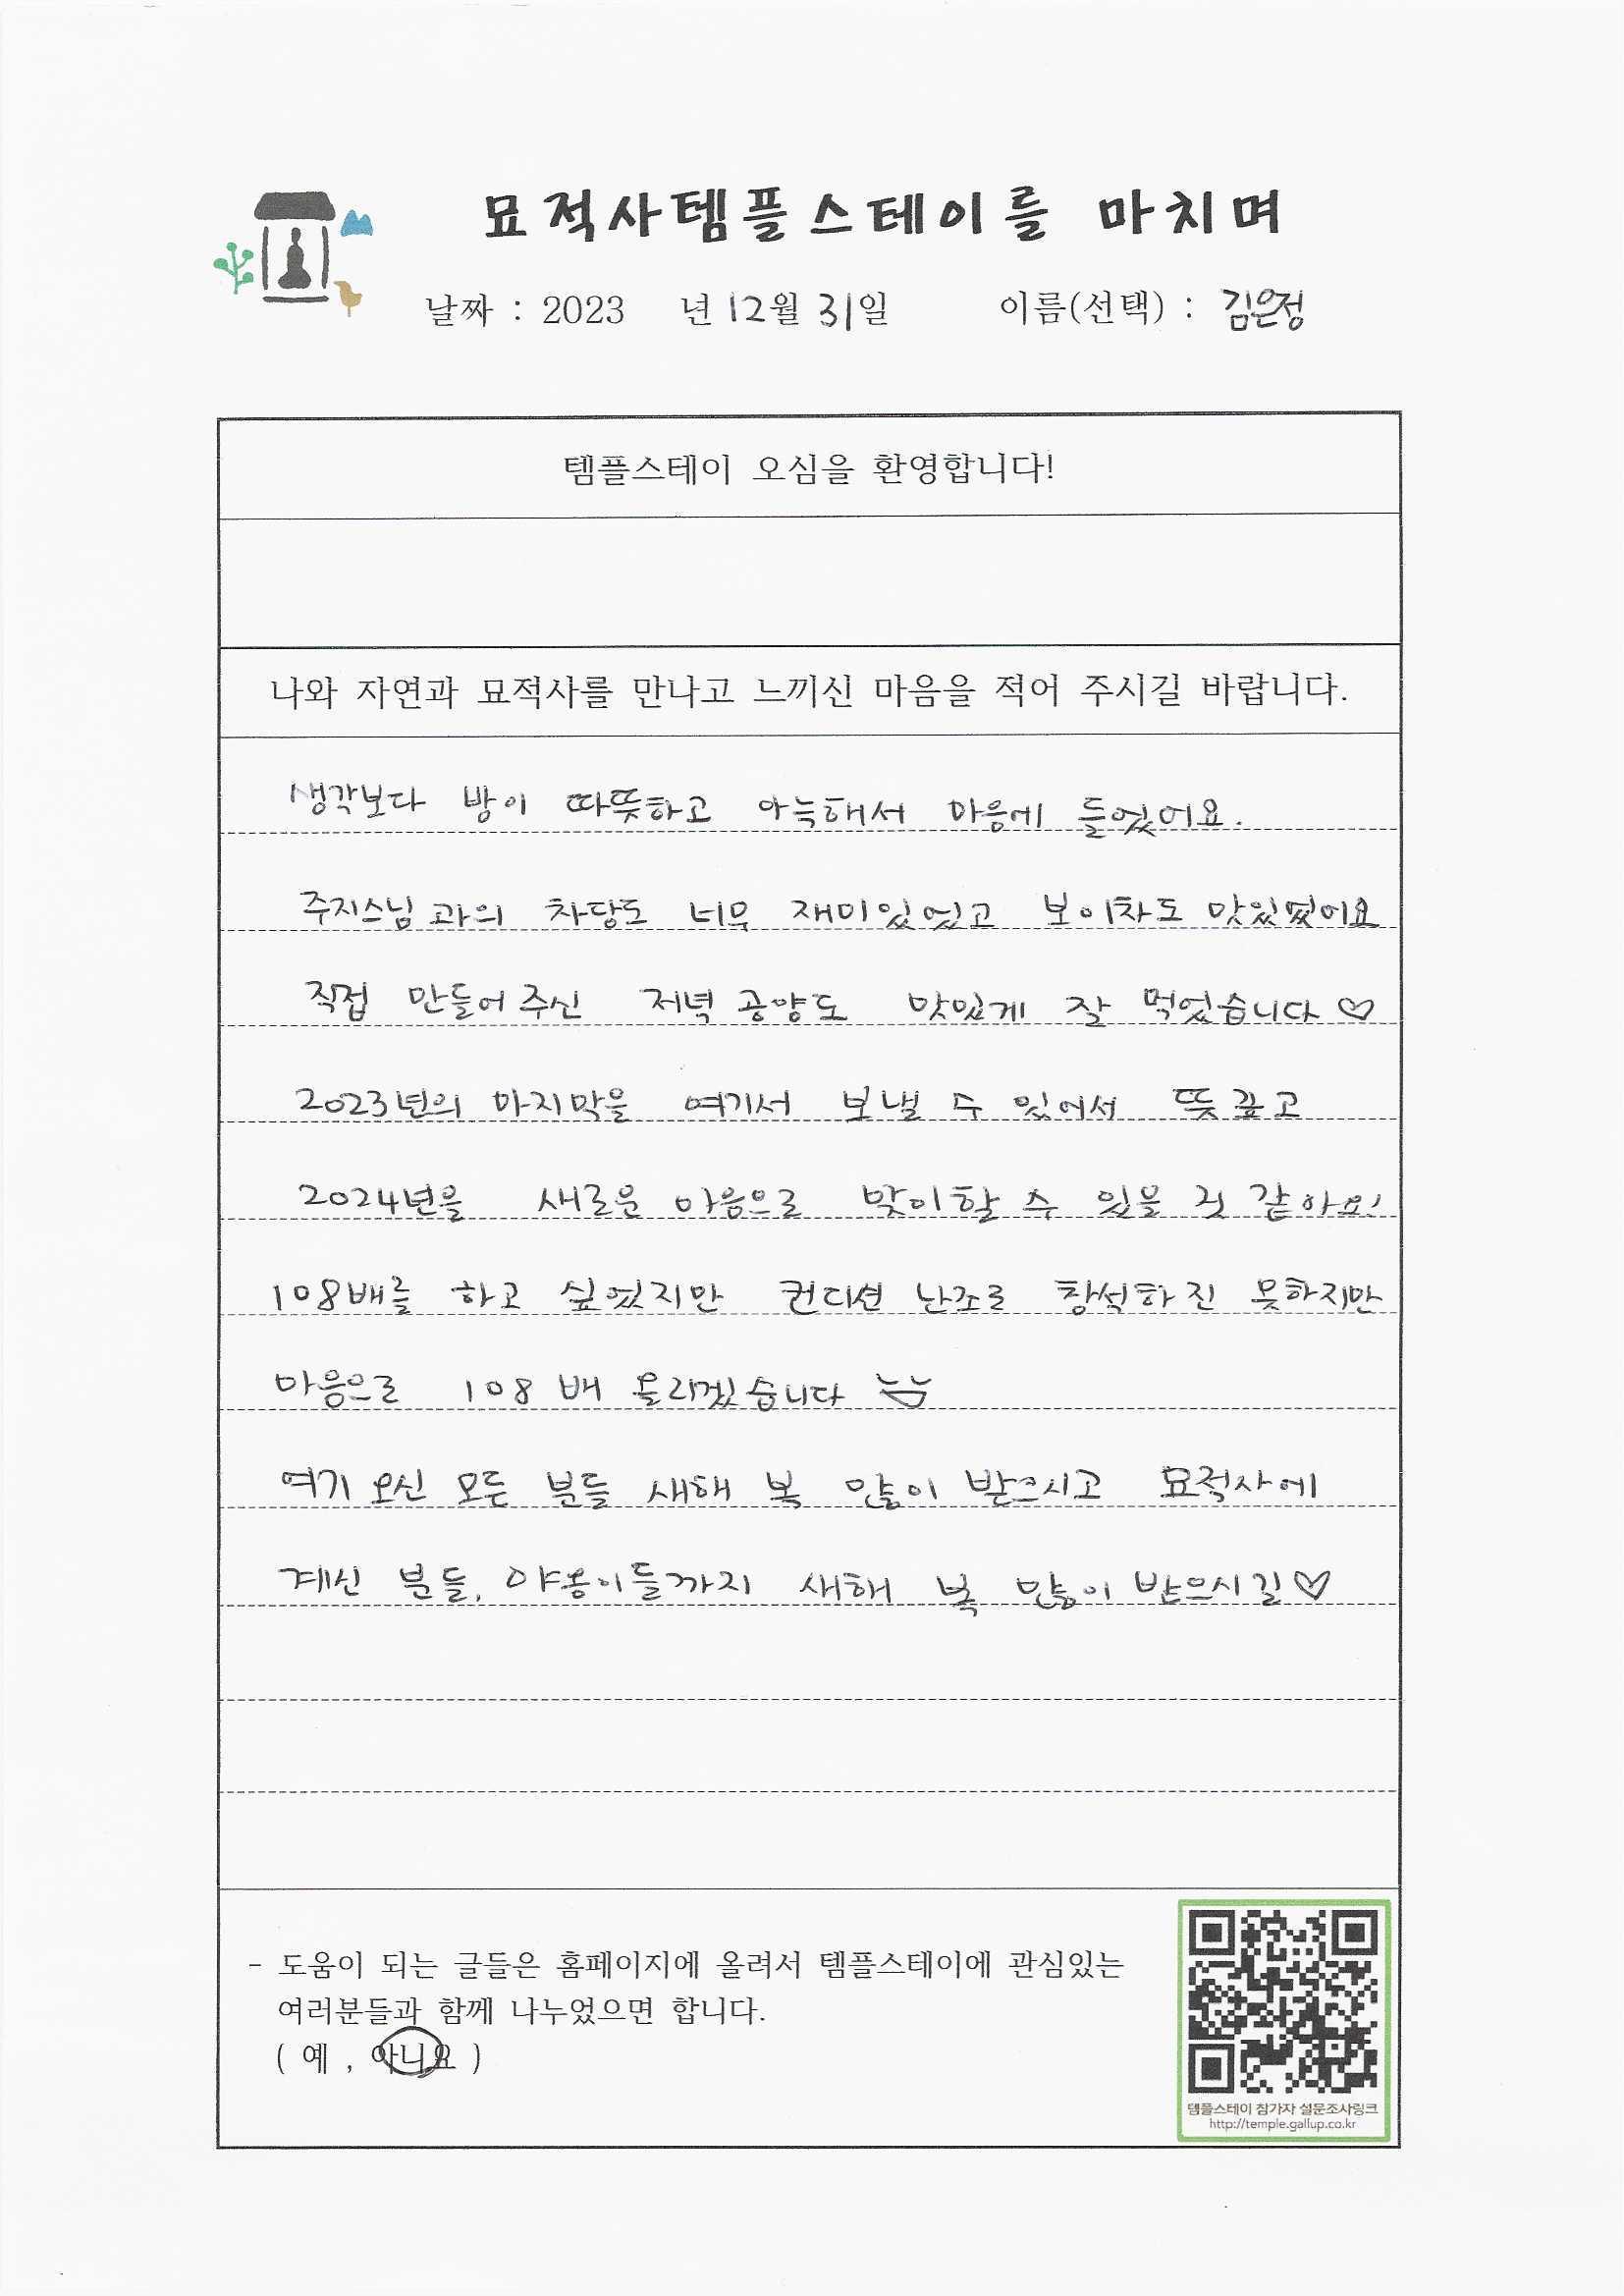 묘적사템플스테이를 마치며
날짜 : 2023 년 12월 31일 이름(선택) : 김은정
템플스테이 오심을 환영합니다!
나와 자연과 묘적사를 만나고 느끼신 마음을 적어 주시길 바랍니다.
생각보다 방이 따뜻하고 아늑해서 마음에 들었어요.
주지스님과의 차담도 너무 재미있었고 보이차도 맛있었어요
직접 만들어 주신 저녁 공양도 맛있게 잘 먹었습니다 ♡
2023년의 마지막을 여기서 보낼 수 있어서 뜻깊고
2024년을 새로운 마음으로 맞이할 수 있을 것 같아요!
108배를 하고 싶었지만 컨디션 난조로 참석하진 못하지만
마음으로 108 배 올리겠습니다
여기 오신 모든 분들 새해 복 많이 받으시고 묘적사에
계신 분들, 야옹이들까지 새해 복 많이 받으시길♡
- 도움이 되는 글들은 홈페이지에 올려서 템플스테이에 관심있는
여러분들과 함께 나누었으면 합니다.
( 예 , 아니요 )
템플스테이 참가자 설문조사링크
http://temple.gallup.co.kr